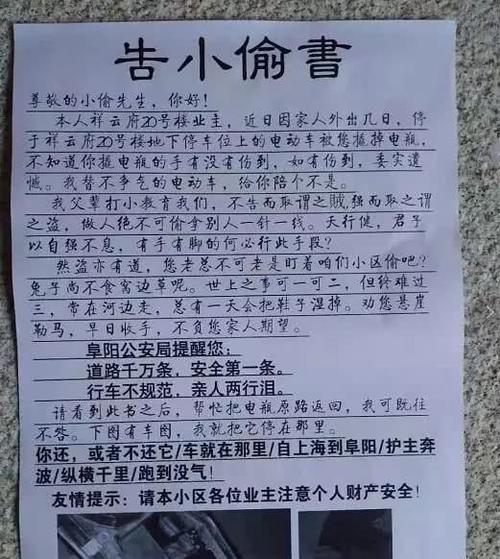 告小偷書
尊敬的小偷先生，你好！
本人祥云府20号楼业主，近日因家人外出几日，停
于祥云府20号楼地下停车位上的电动车被您撬掉电瓶，
不知道你撬电瓶的手有没有伤到，如有伤到，委实遗
憾。我替不争气的电动车，给你陪个不是。
我父辈打小教育我们，不告而取谓之贼,强而取之谓
之盗，做人绝不可偷拿别人一针一线。天行健，君子
以自强不息，有手有脚的何必行此手段？
然盗亦有道，您老总不可老是盯着咱们小区偷吧?
兔子尚不食窝边草呢。世上之事可一可二，但终难过
三，常在河边走，总有一天会把鞋子湿掉。劝您悬崖
勒马，早日收手，不负您家人期望。
阜阳公安局提醒您：
道路千万条，安全第一条。
行车不规范，亲人两行泪。
请看到此书之后，帮忙把电瓶原路返回，我可既往
不咎。下图有车图，我就把它停在那里。
你还，或者不还它/车就在那里/自上海到阜阳/护主奔
波/纵横千里/跑到没气！
友情提示：请本小区各位业主注意个人财产安全！